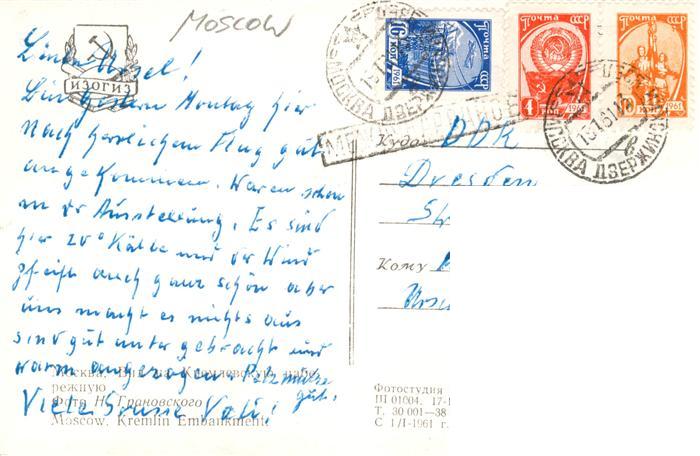 MOSCOW
ИЗОГИЗ
10 КОП. 1961 ПОЧТА СССР
ПОЧТА СССР 4 КОП 1961
ПОЧТА СССР КОП 1961
МОСКВА ДЗЕРЖИНСК
МОСКВА ДЗЕРЖИНСК
Liebe Ursel!
Bin gestern Montag hier
nach herrlichem Flug gut
angekommen. Waren schon
in der Ausstellung. Es sind
hier 20° Kälte und der Wind
pfeift auch ganz schön aber
uns macht es nichts aus
sind gut unter gebracht und
warm angezogen. Pelzmütze
gut.
Viele Grüsse Vati!
Куда DDR
Dresden
Кому
Москва. Вид на Кремлевскую набе-
режную
Фото Н. Грановского
Moscow. Kremlin Embankment
Фотостудия
Ш 01004. 17-1
Т. 30 001—38
С 1/I-1961 г.